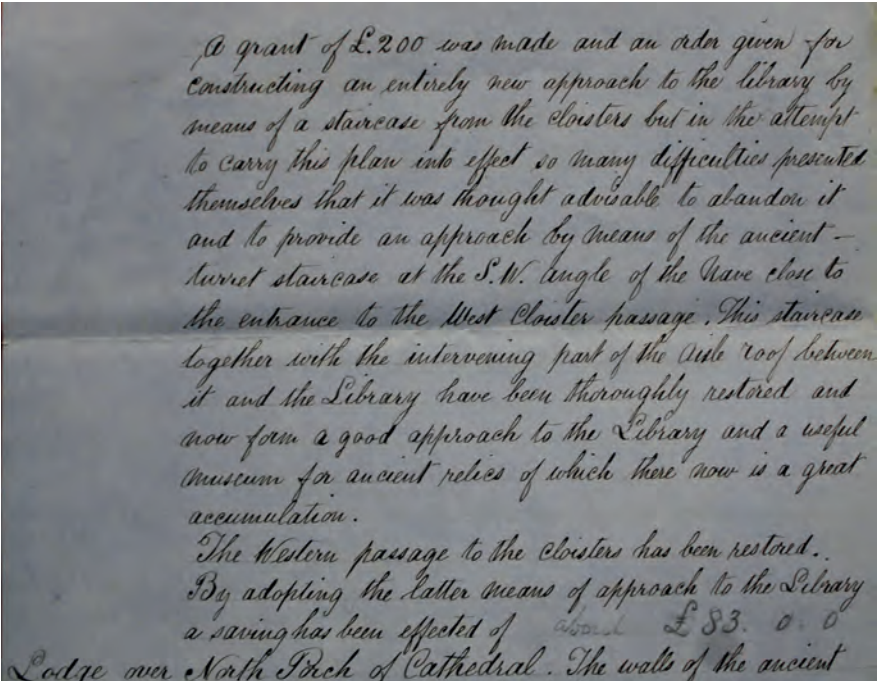 A grant of £.200 was made and an order given for
constructing an entirely new approach to the library by
means of a staircase from the cloisters but in the attempt
to carry this plan into effect so many difficulties presented
themselves that it was thought advisable to abandon it
and to provide an approach by means of the ancient –
turret staircase at the S.W. angle of the Nave close to
the entrance to the West Cloister passage. This staircase
together with the intervening part of the aisle roof between
it and the Library have been thoroughly restored and
now form a good approach to the Library and a useful
museum for ancient relics of which there now is a great
accumulation.
The Western passage to the cloisters has been restored.
By adopting the latter means of approach to the Library
a saving has been effected of about £83. 0. 0
Lodge over North Porch of Cathedral. The walls of the ancient